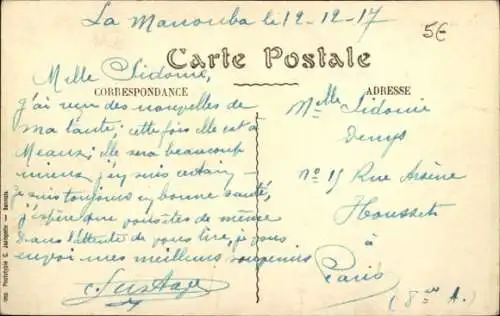 La Manouba le 12-12-17
5€
Carte Postale
CORRESPONDANCE
ADRESSE
Melle Sidonie,
j'ai reçu des nouvelles de
ma tante; cette fois elle est à
Meaux; elle sera beaucoup
mieux, j'en suis certain —
je suis toujours en bonne santé,
j'espère que vous êtes de même
Dans l'attente de vous lire, je vous
envoi mes meilleurs souvenirs
Melle Sidonie
Denys
No 15 Rue Arsène
Houssет
à
Paris
(8me A.)
Imp. Phototypie